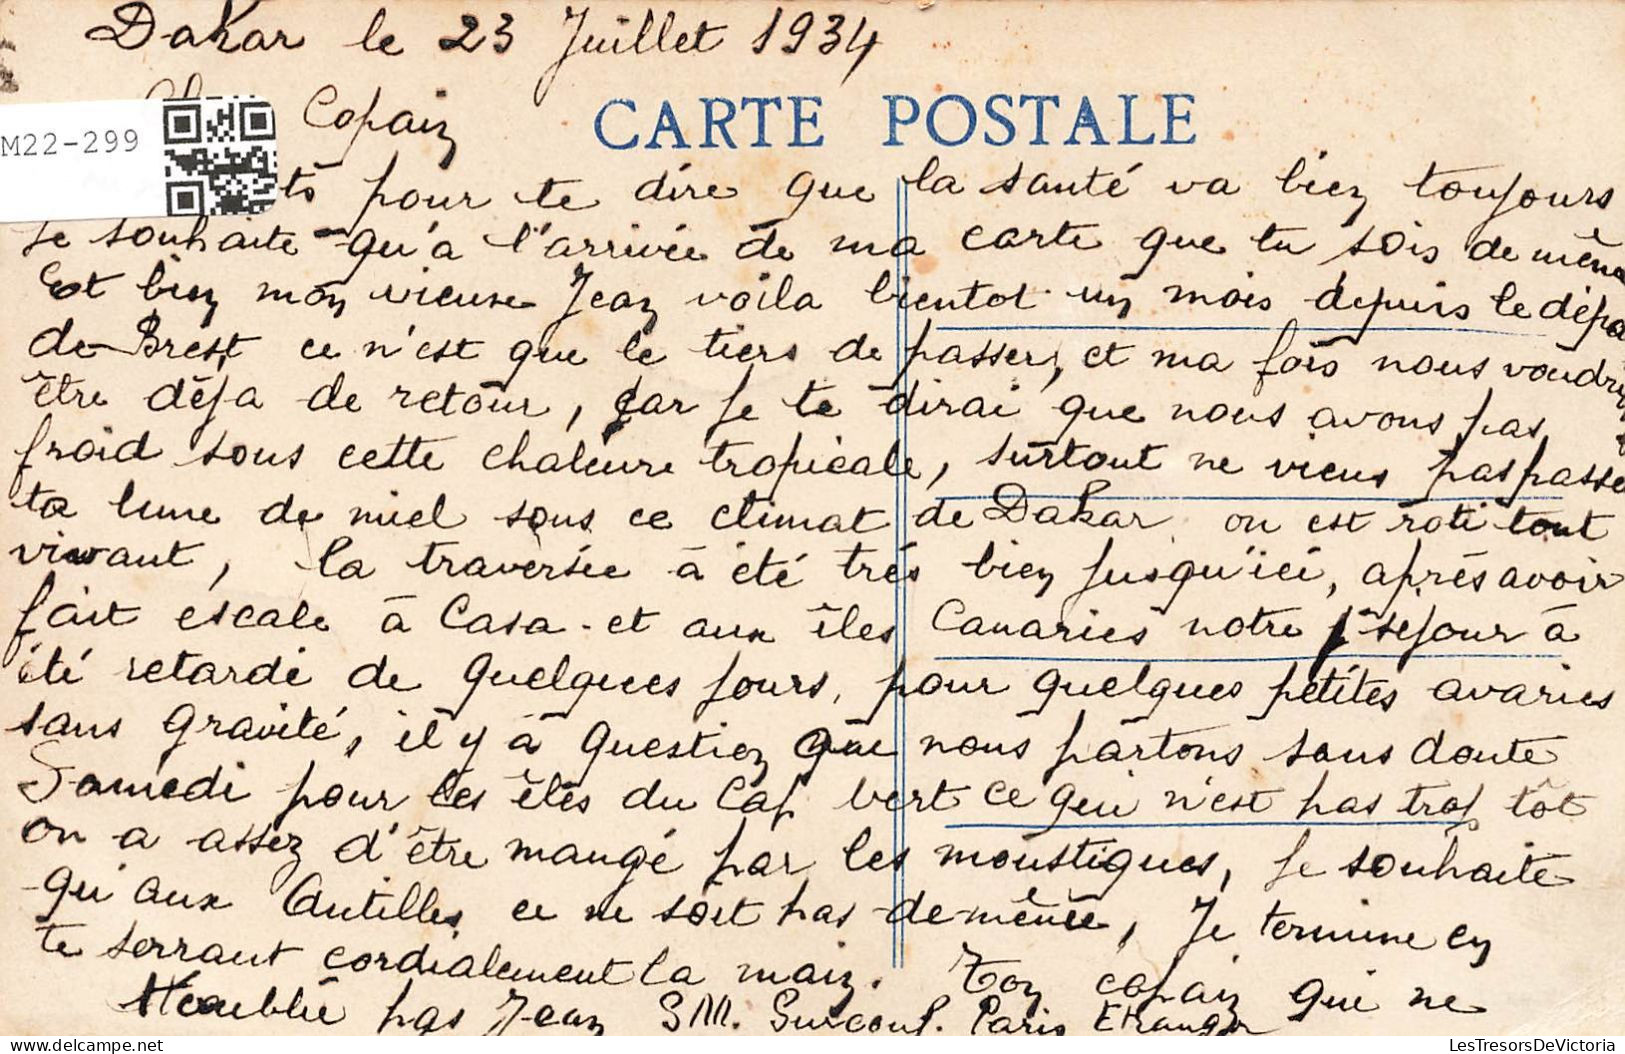 Dakar le 23 Juillet 1934
Copain
CARTE POSTALE
M22-299
pour te dire que la santé va bien toujours
je souhaite qu'a l'arrivée de ma carte que tu sois de même
Est bien mon vieux Jean voila bientot un mois depuis le dépa
de Brest ce n'est que le tiers de passer, et ma fois nous voudri
être déja de retour, car je te dirai que nous avons pas
froid sous cette chaleure tropicale, surtout ne viens pas passe
ta lune de miel sous ce climat de Dakar on est roti tout
vivant, la traversée à été trés bien jusqu'ici, aprés avoir
fait escale à Casa et aux îles Canaries notre séjour à
été retardé de quelques jours, pour quelques petites avaries
sans gravité, il y à question que nous partons sans doute
Samedi pour les îles du Cap vert ce qui n'est pas trop tôt
on a assez d'être mangé par les moustiques, je souhaite
qu'aux Antilles ce ne soit pas de même, Je termine en
te serrant cordialement la main. Ton copain qui ne
t'eoublie pas Jean S/M. Surcouf. Paris Etranger
LesTresorsDeVictoria